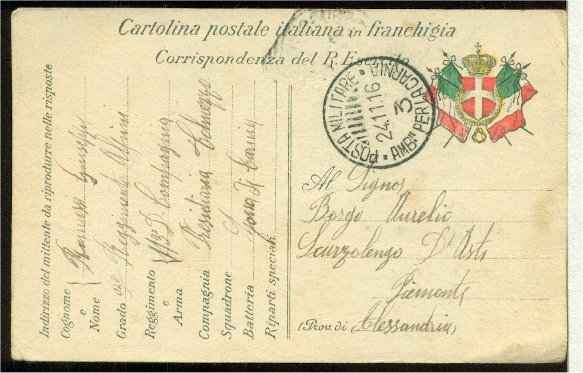 Cartolina postale italiana in franchigia
Corrispondenza del R. Esercito
POSTA MILITARE
24.11.16
3
AMBna PER LA CARNIA
Al Signor
Borgo Aurelio
Scurzolengo D'Asti
Piemonte
(Prov. di Alessandria)
Indirizzo del mittente da riprodurre nelle risposte
Cognome
e
Nome Giuseppe
Grado Reggimento Alpini
Reggimento Compagnia
e
Arma
Compagnia Presidiaria
Squadrone
Batteria Zona di
Riparti speciali